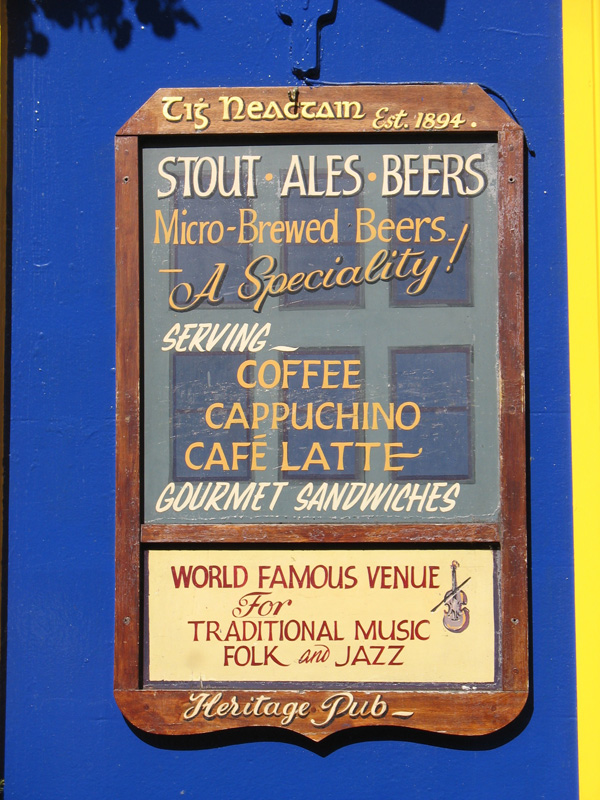 Tiġ Neaċtain Est. 1894.
STOUT · ALES · BEERS
Micro-Brewed Beers-
- A Speciality!
SERVING -
COFFEE
CAPPUCHINO
CAFÉ LATTE
GOURMET SANDWICHES
WORLD FAMOUS VENUE
For
TRADITIONAL MUSIC
FOLK and JAZZ
Heritage Pub -